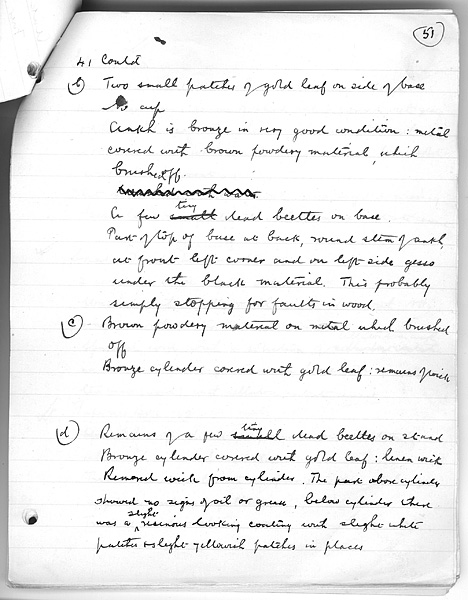 51
41 Contd
(b) Two small patches of gold leaf on side of base
No cup
Ankh is bronze in very good condition: metal
covered with brown powdery material, which
brushed off.
tiny
A few small dead beetles on base.
Part of top of base at back, round stem of ankh,
at front left corner and on left side gesso
under the black material. This probably
simply stopping for faults in wood.
(c) Brown powdery material on metal which brushed
off
Bronze cylinder covered with gold leaf: remains of wick
tiny
(d) Remains of a few small dead beetles on stand
Bronze cylinder covered with gold leaf: linen wick
Removed wick from cylinder. The part above cylinder
showed no signs of oil or grease, below cylinder there
slight
was a resinous looking coating with slight white
patches & slight yellowish patches in places